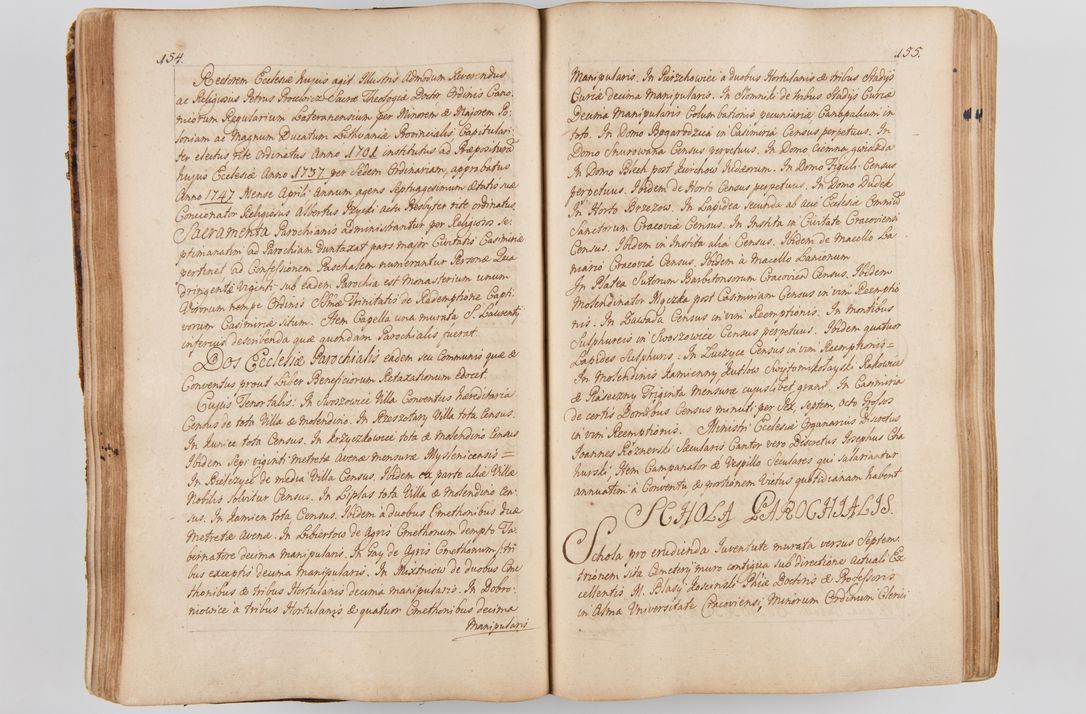 154.
Rectorem Ecclesiæ hujus agit Illustris Admodum Reverendus
ac Religiosus Petrus Procewicz Sacræ Theologiæ Doctor Ordinis Cano-
nicorum Regularium Lateranensium per Minorem & Majorem Po-
loniam ac Magnum Ducatum Lithuaniæ Provincialis Capitulari-
ter electus rite Ordinatus Anno 1701 institutus ad Præposituram
hujus Ecclesiæ Anno 1737 per Sedem Ordinariam, approbatus
Anno 1747 Mense Aprili annum agens Septuagesimum Ætatis suæ
Concionator Religiosus Albertus actu Presbyter rite ordinatus
Sacramenta Parochianis administrantur per Religioso Se-
ptimanatim ad Parochiam duntaxat pars major Civitatis Casimiriæ
pertinet ad Confessionem Paschalem numerantur Personæ Qua-
dringentæ Viginti sub eadem Parochia est Monasterium unum
Virorum nempe Ordinis SSmæ Trinitatis de Redemptione Capti-
vorum Casimiriæ situm. Item Capella una murata S. Laurentij
inferius describenda quæ quondam Parochialis fuerat.
Dos Ecclesiæ Parochialis eadem seu Communis quæ &
Conventus prout Liber Beneficiorum Retaxationum edocet.
Cujus Tenor talis: In Swoszowice Villa Conventus hæreditaria
Census de tota Villa & molendino. In Rzeszotary Villa tota Census.
In Kunice tota Census. In Krzyszkowice tota & molendino Census
Ibidem Septi viginti metretæ Avenæ mensuræ Myslenicensis =
In Rzeszyce de media Villa Census. Ibidem ex parte alia Villæ
Nobilis solvitur Census. In Liplas tota Villa & Molendino Cen-
sus. In Kamien tota Census. Ibidem à duobus Cmethonibus duæ
Metretæ Avenæ. In Libertow de Agris Cmethonum dempto Ta-
bernatore decima manipularis. In Gay de Agris Cmethonum tri-
bus exceptis decima manipularis. In duobus Cme-
thonibus & tribus Hortulanis decima manipularis. In Dobro-
niowice à tribus Hortulanis & quatuor Cmethonibus decima
Manipularis
155.
Manipularis. In Pierzchowice à duobus Hortulanis & tribus Stadijs
Curiæ decima Manipularis. In Słomniki de tribus Stadijs Curiæ
Decima Manipularis Columbationis pecuniariæ Canapalium in
toto. In Domo Bogarodzica in Casimiria Census perpetuus. In
Domo Snurowska Census perpetuus. In Domo Ciemna gwiazda
In Domo Blech post Kierchow Judæorum. In Domo Figuli Census
perpetuus. Ibidem de Horto Census perpetuus. In Domo Dudek
In Horto Brzezow. In Lapidea secunda ab acie Ecclesiæ Omnium
Sanctorum Cracoviæ Census. In Instita in Civitate Cracoviensi
Census. Ibidem in Instita alia Census. Ibidem de Macello La-
niario Cracoviæ Census. Ibidem à Macello Lanionum
In Platea Sutorum Barbitonsorum Cracoviæ Census. Ibidem
Molendinator Mączka post Casimiriam Census in vim Reemptio-
nis. In Zawada Census in vim Reemptionis. In Montibus
Sulphureis in Swoszowice Census perpetuus. Ibidem quatuor
Lapides Sulphuris. In Luczyce Census in vim Reemptionis =
In Molendinis Kamienny, Kutlow Swiętomikołayski Rakowice
& Piaseczny Triginta mensuræ cujuslibet grani. In Casimiria
de certis Domibus Census minuti per Sex, Septem, Octo Grossos
in vim Reemptionis. Ministri Ecclesiæ Organarius Discretus
Joannes Roznerski Sæcularis Cantor vero Discretus Josephus Cha-
hurski, Item Campanator & Vespillo Sæculares qui salariantur
annuatim à Conventu, & portionem Victus quotidianam habent
SCHOLA PAROCHIALIS.
Schola pro erudienda Juventute murata versus Septem-
trionem sita Cæmeterij muro contigua sub directione actuali Ex-
cellentis M. Blasij Phiæ Doctoris & Professoris
in Alma Universitate Cracoviensi, Minorum Ordinum Clerici